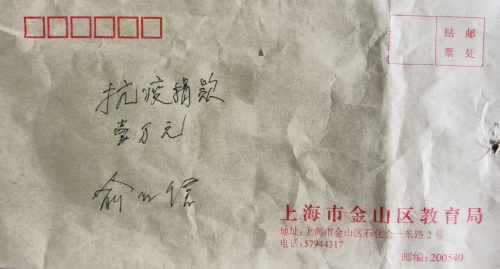 贴邮
票处
抗疫捐款
壹万元
上海市金山区教育局
地址:上海市金山区石化金一东路2号
电话:57944317
邮编:200540